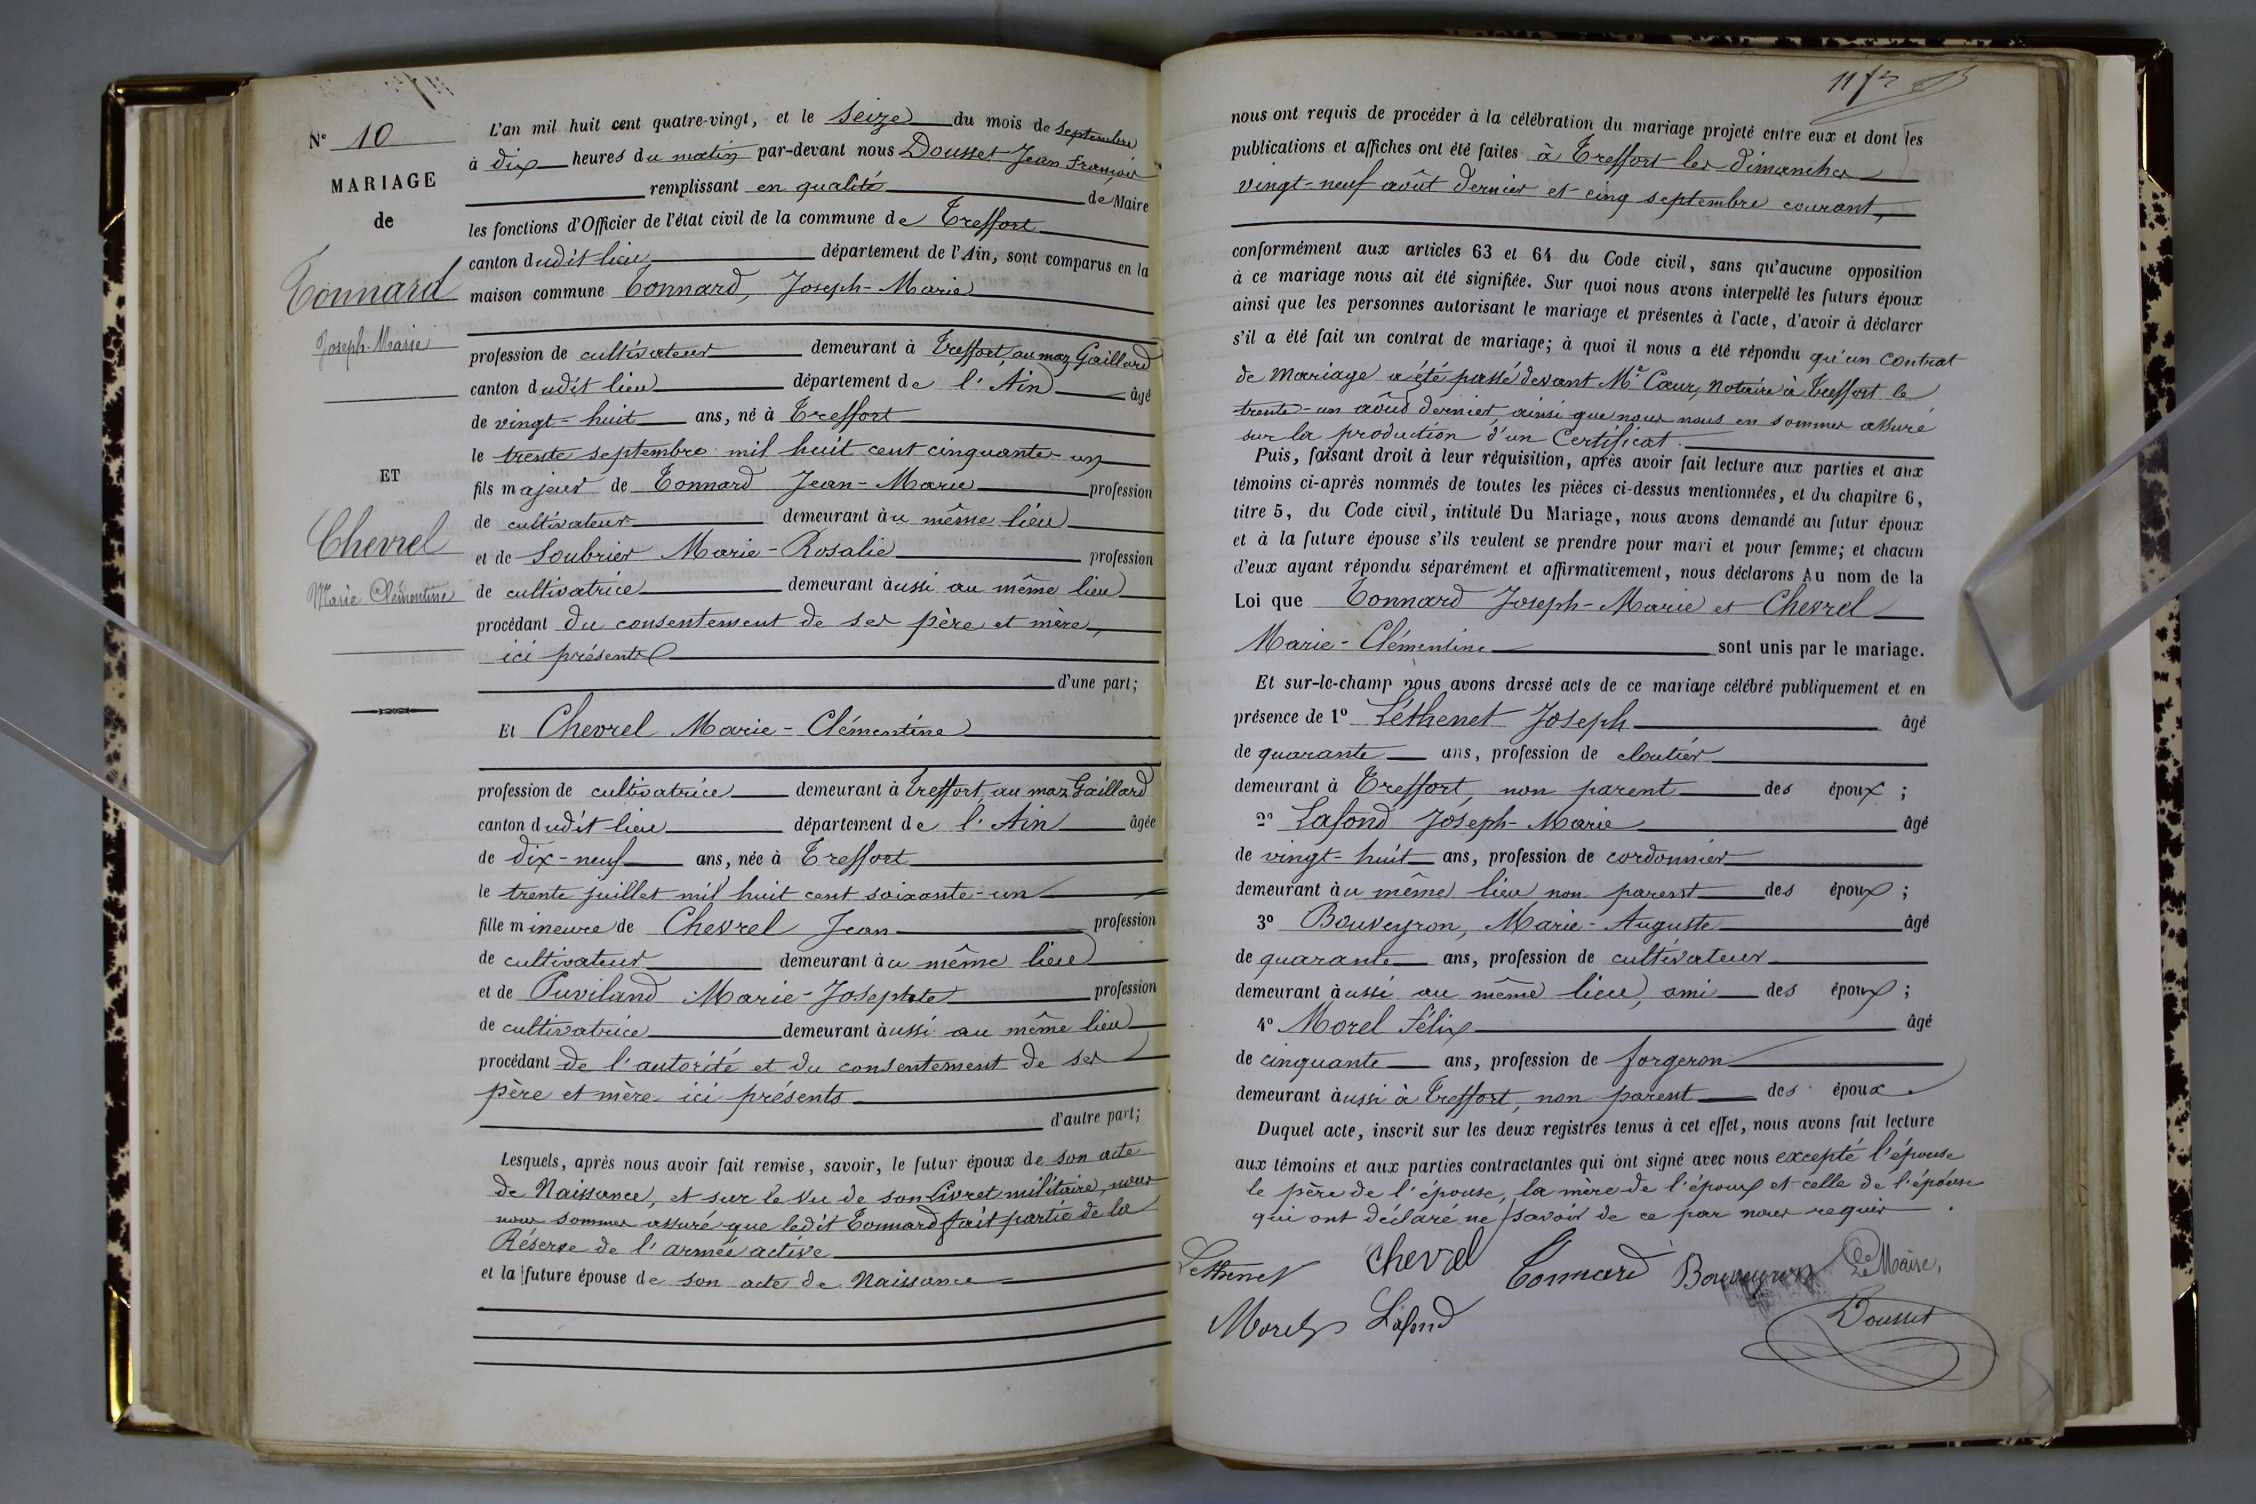 N° 10
MARIAGE
de
Tonnard
Joseph-Marie
ET
Chevrel
Marie Clémentine
L'an mil huit cent quatre-vingt, et le seize du mois de septembre
à dix heures du matin par-devant nous Dousset Jean François
remplissant en qualité de Maire
les fonctions d'Officier de l'état civil de la commune de Treffort
canton dudit lieu département de l'Ain, sont comparus en la
maison commune Tonnard, Joseph-Marie
profession de cultivateur demeurant à Treffort, au maz Gaillard
canton dudit lieu département de l'Ain âgé
de vingt-huit ans, né à Treffort
le trente septembre mil huit cent cinquante-un
fils majeur de Tonnard Jean-Marie profession
de cultivateur demeurant au même lieu
et de Soubrier Marie-Rosalie profession
de cultivatrice demeurant aussi au même lieu
procédant du consentement de ses père et mère,
ici présents
d'une part;
Et Chevrel Marie-Clémentine
profession de cultivatrice demeurant à Treffort, au maz Gaillard
canton dudit lieu département de l'Ain âgée
de dix-neuf ans, née à Treffort
le trente juillet mil huit cent soixante-un
fille mineure de Chevrel Jean profession
de cultivateur demeurant au même lieu
et de Puviland Marie-Josephte profession
de cultivatrice demeurant aussi au même lieu
procédant de l'autorité et du consentement de ses
père et mère ici présents
d'autre part;
Lesquels, après nous avoir fait remise, savoir, le futur époux de son acte
de Naissance, et sur le vu de son Livret militaire, nous
nous sommes assuré que ledit Tonnard fait partie de la
Réserve de l'armée active
et la future épouse de son acte de Naissance
nous ont requis de procéder à la célébration du mariage projeté entre eux et dont les
publications et affiches ont été faites à Treffort les dimanches
vingt-neuf août dernier et cinq septembre courant,
conformément aux articles 63 et 64 du Code civil, sans qu'aucune opposition
à ce mariage nous ait été signifiée. Sur quoi nous avons interpellé les futurs époux
ainsi que les personnes autorisant le mariage et présentes à l'acte, d'avoir à déclarer
s'il a été fait un contrat de mariage; à quoi il nous a été répondu qu'un contrat
de mariage a été passé devant Me Cœur, Notaire à Treffort le
trente-un août dernier, ainsi que nous nous en sommes assuré
sur la production d'un Certificat.
Puis, faisant droit à leur réquisition, après avoir fait lecture aux parties et aux
témoins ci-après nommés de toutes les pièces ci-dessus mentionnées, et du chapitre 6,
titre 5, du Code civil, intitulé Du Mariage, nous avons demandé au futur époux
et à la future épouse s'ils veulent se prendre pour mari et pour femme; et chacun
d'eux ayant répondu séparément et affirmativement, nous déclarons Au nom de la
Loi que Tonnard Joseph-Marie et Chevrel
Marie-Clémentine sont unis par le mariage.
Et sur-le-champ nous avons dressé acte de ce mariage célébré publiquement et en
présence de 1° Léthenet Joseph âgé
de quarante ans, profession de cloutier
demeurant à Treffort, non parent des époux;
2° Lafond Joseph-Marie âgé
de vingt-huit ans, profession de cordonnier
demeurant au même lieu non parent des époux;
3° Bouveyron, Marie-Auguste âgé
de quarante ans, profession de cultivateur
demeurant aussi au même lieu, ami des époux;
4° Morel Félix âgé
de cinquante ans, profession de forgeron
demeurant aussi à Treffort, non parent des époux.
Duquel acte, inscrit sur les deux registres tenus à cet effet, nous avons fait lecture
aux témoins et aux parties contractantes qui ont signé avec nous excepté l'épouse
le père de l'épouse, la mère de l'époux et celle de l'épouse
qui ont déclaré ne savoir de ce par nous requis.
Lethenet Chevrel Tonnard Bouveyron Le Maire,
Morel Lafond Dousset